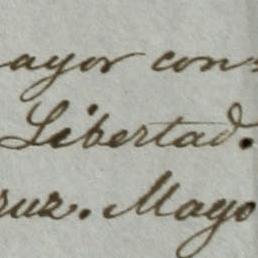 ayor con=
Libertad.
ruz. Mayo